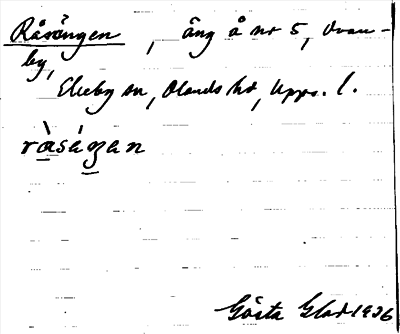 Råsängen, äng å nr 5, Ovan-
by,
Ekeby sn, Olands hd, Upps. l.
Gösta Glad 1936